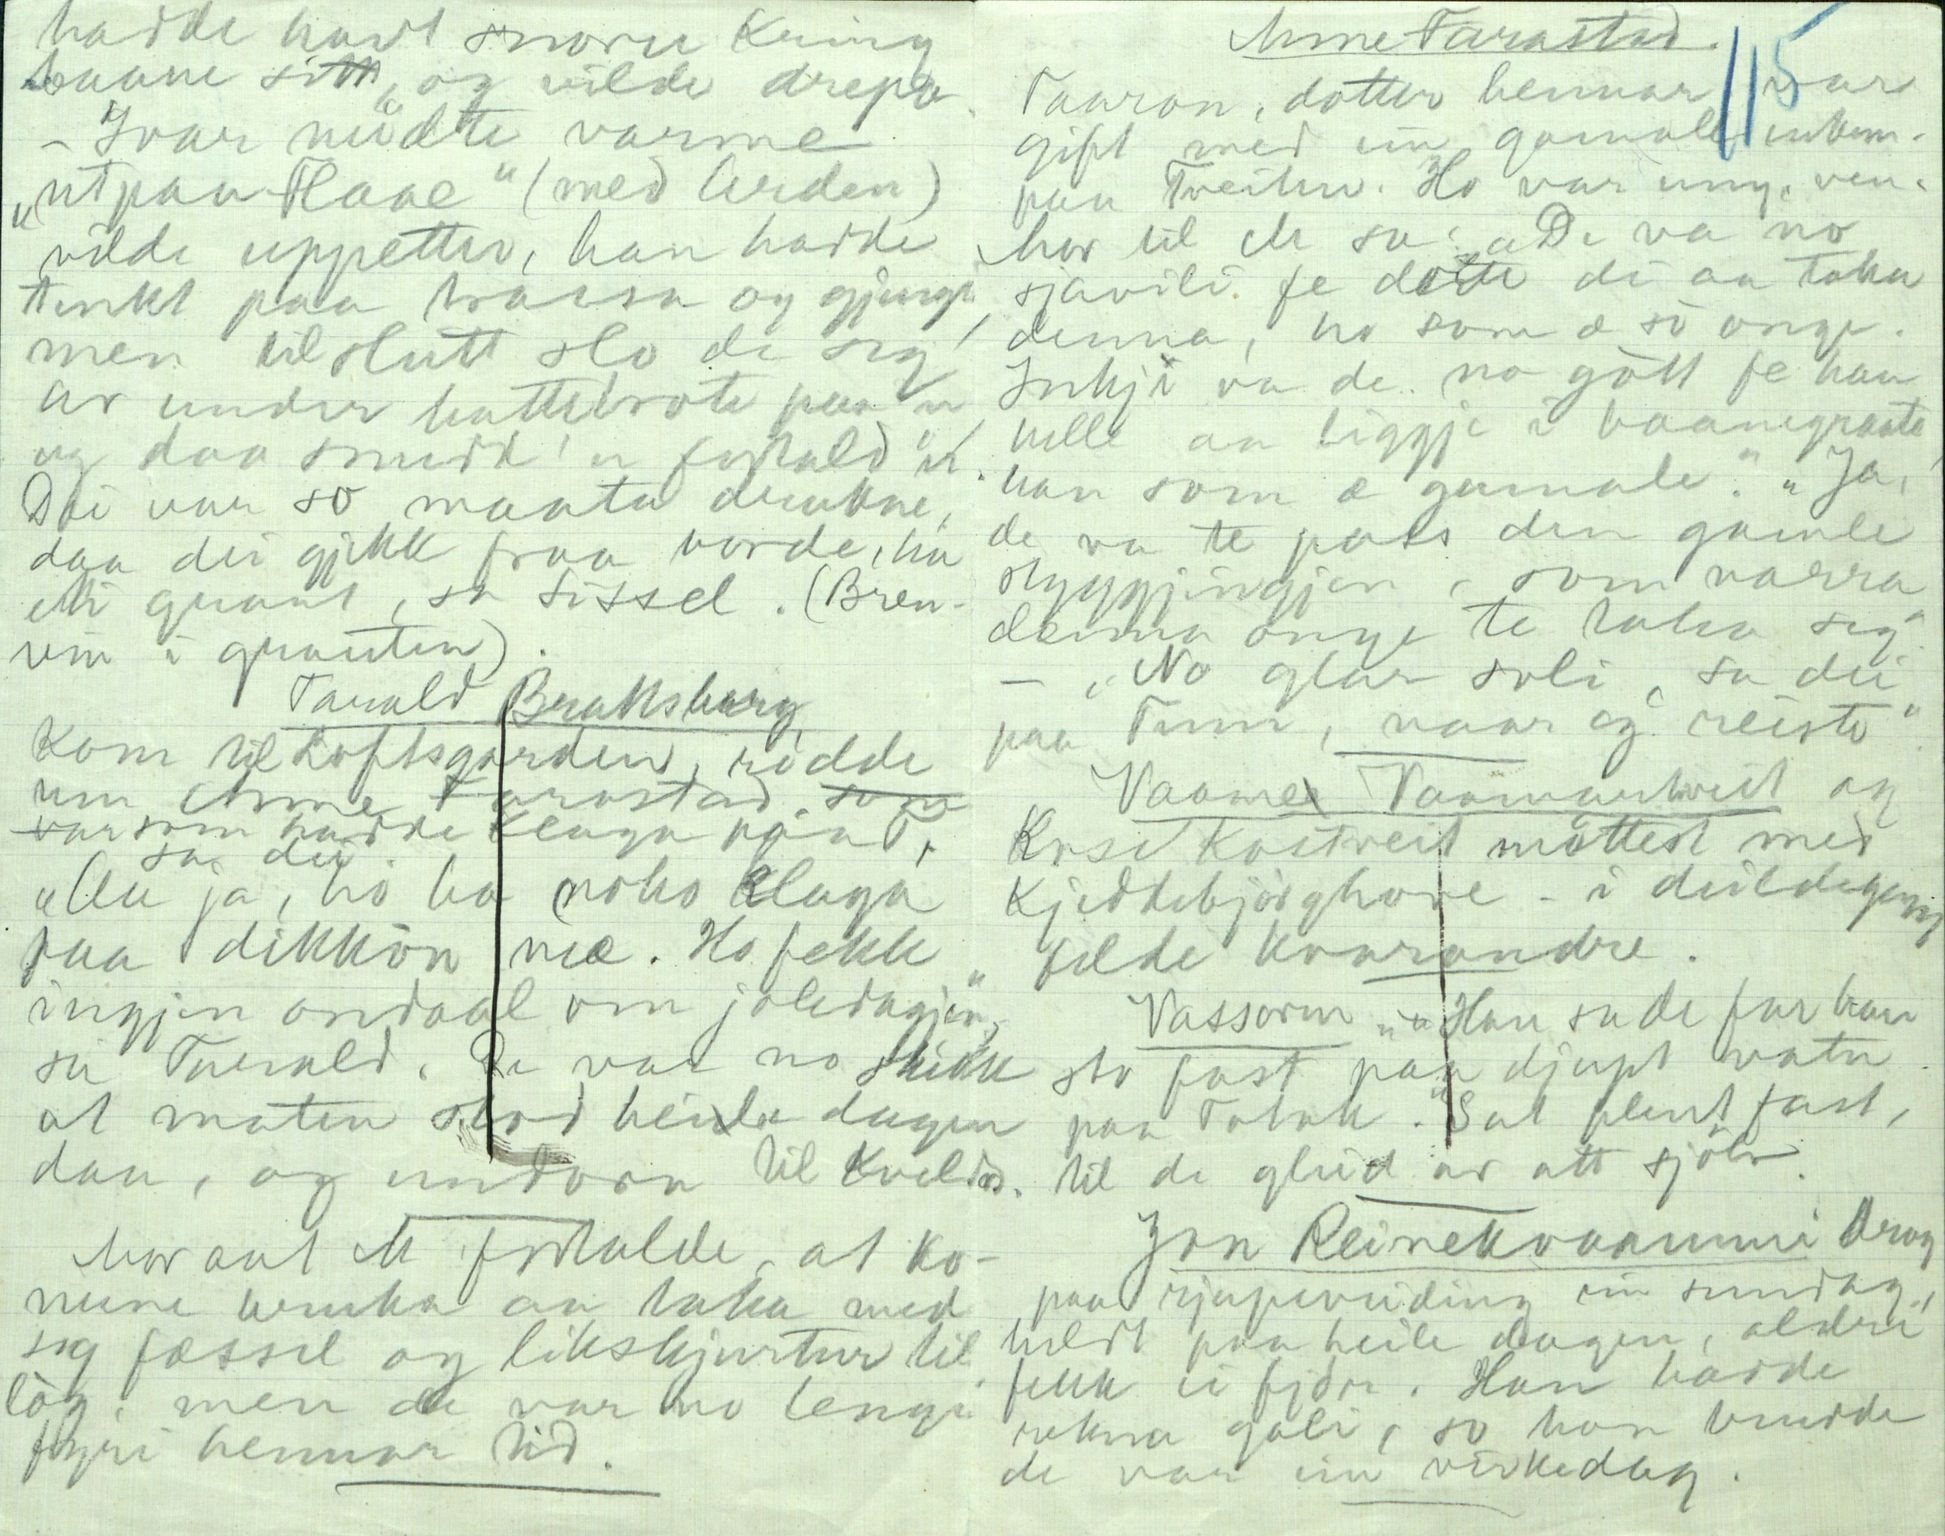 hadde havt snoru kring
baane sitt, og vilde drepa.
- Ivar mødte varme
"utpaa Flaae" (med Urden)
vilde uppetter, han hadde
tenkt paa
men tilslutt slo de seg
av under hattebrote paa 'n
og daa smudd' 'n
Dei var so maata drukne,
daa dei gjekk fraa borde, ha
eti graut, sa Sissel. (Bren-
vin i grauten).
Tarald Brattsberg
Kom til Loftsgarden, rødde
um Anne Tarastad, som
var som hadde klaga paa T,
sa dei.
"Aa ja, ho ha noko klaga
paa dikkòn mæ. Ho fekk
ingjen ondaal om joledagjen",
sa Tarald. De var no skikk
at maten stod heile dagen
daa, og undorn til kvelds.
Mor aat M fortalde, at ko-
nune bruka aa taka med
seg fæssel og likskjurtur til
lòg, men de var no lengi
fyri hennar tid.
Anne Tarastad. 115
Taaran, dotter hennar var
gift med ein gamall enkem.
paa Treitun. Ho var ung, ven.
Mor til M sa: "De va no
sjavili fe dotte di aa taka
denna, ho som æ so onge.
Inkji va de no gòtt fe han
helle aa liggje i baanegraate
han som æ gamale." "Ja,
de va te pass den gamle
styggjingjen, som varra
denna onge te taka seg"
- "No glar soli, sa dei
paa Tinn, vaar og reiste"
Vaamer Vaamartveit og
Rosi Kostveit møttest med
Kjeddebjørghove - i deildegang
felde kvarandre.
Vassorm "" Han sa de far han
sto fast paa djupt vatn
paa Totak. "Sat plent fast,
til de gleid av att sjølv.
Jon Reinekvaammi drog
paa rjupeveiding ein sundag,
heldt paa heile dagen, aldri
fekk ei fjør. Han hadde
rekna gali, so han trudde
de var ein virkedag.